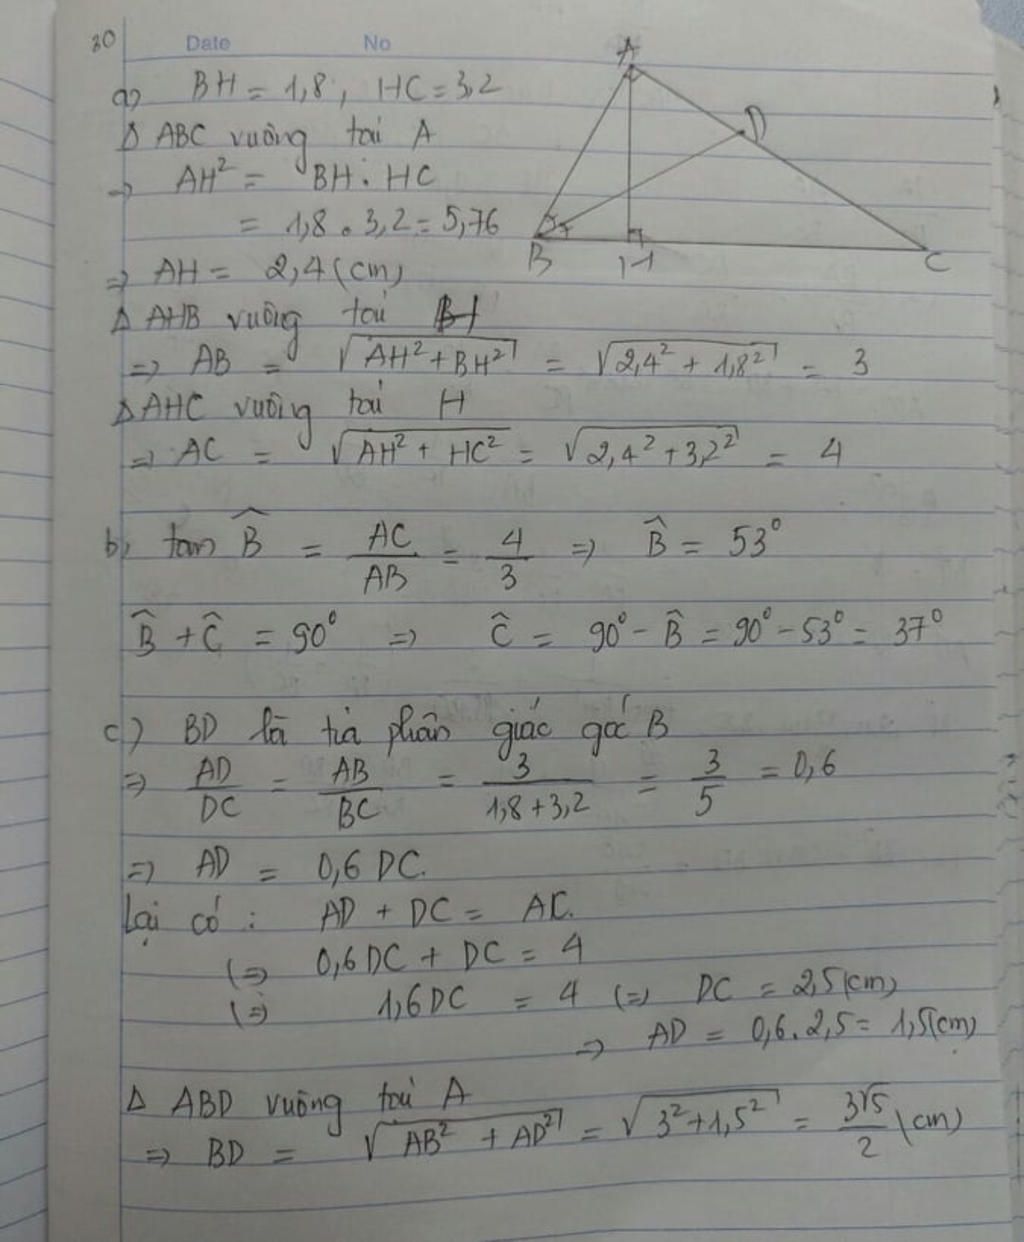 30
Date No
a) BH = 1,8 , HC = 3,2
Δ ABC vuông tại A
⇒ AH² = BH . HC
= 1,8 . 3,2 = 5,76
⇒ AH = 2,4 (cm)
A
D
B
H
C
Δ AHB vuông tại H
⇒ AB = √(AH² + BH²) = √(2,4² + 1,8²) = 3
Δ AHC vuông tại H
⇒ AC = √(AH² + HC²) = √(2,4² + 3,2²) = 4
b) tan B̂ = AC/AB = 4/3 ⇒ B̂ = 53°
B̂ + Ĉ = 90° ⇒ Ĉ = 90° - B̂ = 90° - 53° = 37°
c) BD là tia phân giác góc B
⇒ AD/DC = AB/BC = 3/(1,8 + 3,2) = 3/5 = 0,6
⇒ AD = 0,6 DC.
Lại có : AD + DC = AC.
(⇒ 0,6 DC + DC = 4
(⇒ 1,6 DC = 4 (⇒) DC = 2,5 (cm)
⇒ AD = 0,6 . 2,5 = 1,5 (cm)
Δ ABD vuông tại A
⇒ BD = √(AB² + AD²) = √(3² + 1,5²) = 3√5/2 (cm)